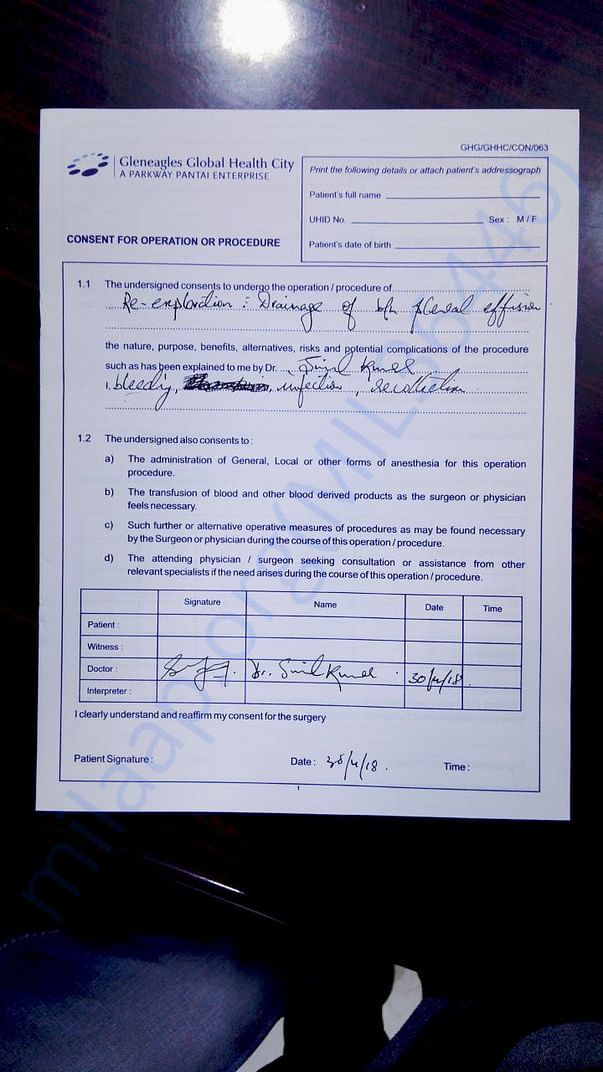 GHG/GHHC/CON/063
Gleneagles Global Health City
A PARKWAY PANTAI ENTERPRISE
CONSENT FOR OPERATION OR PROCEDURE
Print the following details or attach patient's addressograph
Patient's full name
UHID No. Sex : M / F
Patient's date of birth
1.1 The undersigned consents to undergo the operation / procedure of
Re-exploration : Drainage of b/n pleural effusion
the nature, purpose, benefits, alternatives, risks and potential complications of the procedure
such as has been explained to me by Dr. Sunil Kumar
1. bleeding, infection, recollection
1.2 The undersigned also consents to :
a) The administration of General, Local or other forms of anesthesia for this operation
procedure.
b) The transfusion of blood and other blood derived products as the surgeon or physician
feels necessary.
c) Such further or alternative operative measures of procedures as may be found necessary
by the Surgeon or physician during the course of this operation / procedure.
d) The attending physician / surgeon seeking consultation or assistance from other
relevant specialists if the need arises during the course of this operation / procedure.
Signature Name Date Time
Patient :
Witness :
Doctor : Dr. Sunil Kumar 30/4/18
Interpreter :
I clearly understand and reaffirm my consent for the surgery
Patient Signature : Date : 30/4/18. Time :
1
milaap.org(MIL364446)